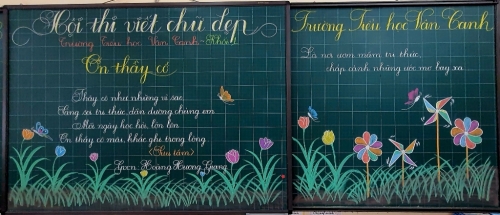 Hội thi viết chữ đẹp
Trường Tiểu học Vân Canh - Khối 1
Ơn thầy cô
Thầy cô như những vì sao
Sáng soi tri thức, dẫn đường chúng em
Mỗi ngày học hỏi, lớn lên
Ơn thầy cô mãi, khắc ghi trong lòng
(Sưu tầm)
Gvcn: Hoàng Hương Giang
Trường Tiểu học Vân Canh
Là nơi ươm mầm tri thức,
chắp cánh những ước mơ bay xa.